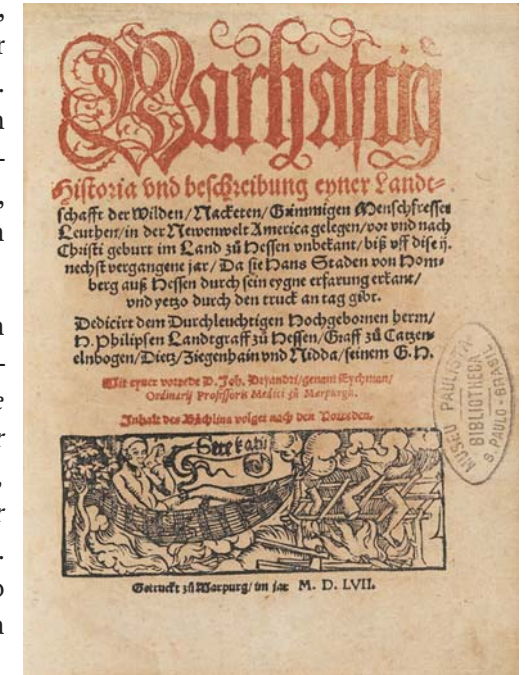 Warhaftig
Historia vnd beschreibung eyner Landt-
schafft der Wilden/Nacketen/Grimmigen Menschfresser
Leuthen/in der Newenwelt America gelegen/vor vnd nach
Christi geburt im Land zů Hessen vnbekant/biß vff dise ij.
nechst vergangene jar/Da sie Hans Staden von Hom-
berg auß Hessen durch sein eygne erfarung erkant/
vnd yetzo durch den truck an tag gibt.
Dedicirt dem Durchleuchtigen Hochgebornen herrn/
H. Philipsen Landtgraff zů Hessen/Graff zů Catzen-
elnbogen/Dietz/Ziegenhain vnd Nidda/seinem G. H.
Mit eyner vorrede D. Joh. Dryandri/genant Eychman/
Ordinarij Professoris Medici zů Marpurgk.
Inhalt des Büchlins volget nach den Vorreden.
Sete katu
Getruckt zů Marpurg/im jar M. D. LVII.
MUSEU PAULISTA
BIBLIOTHECA
S. PAULO - BRASIL